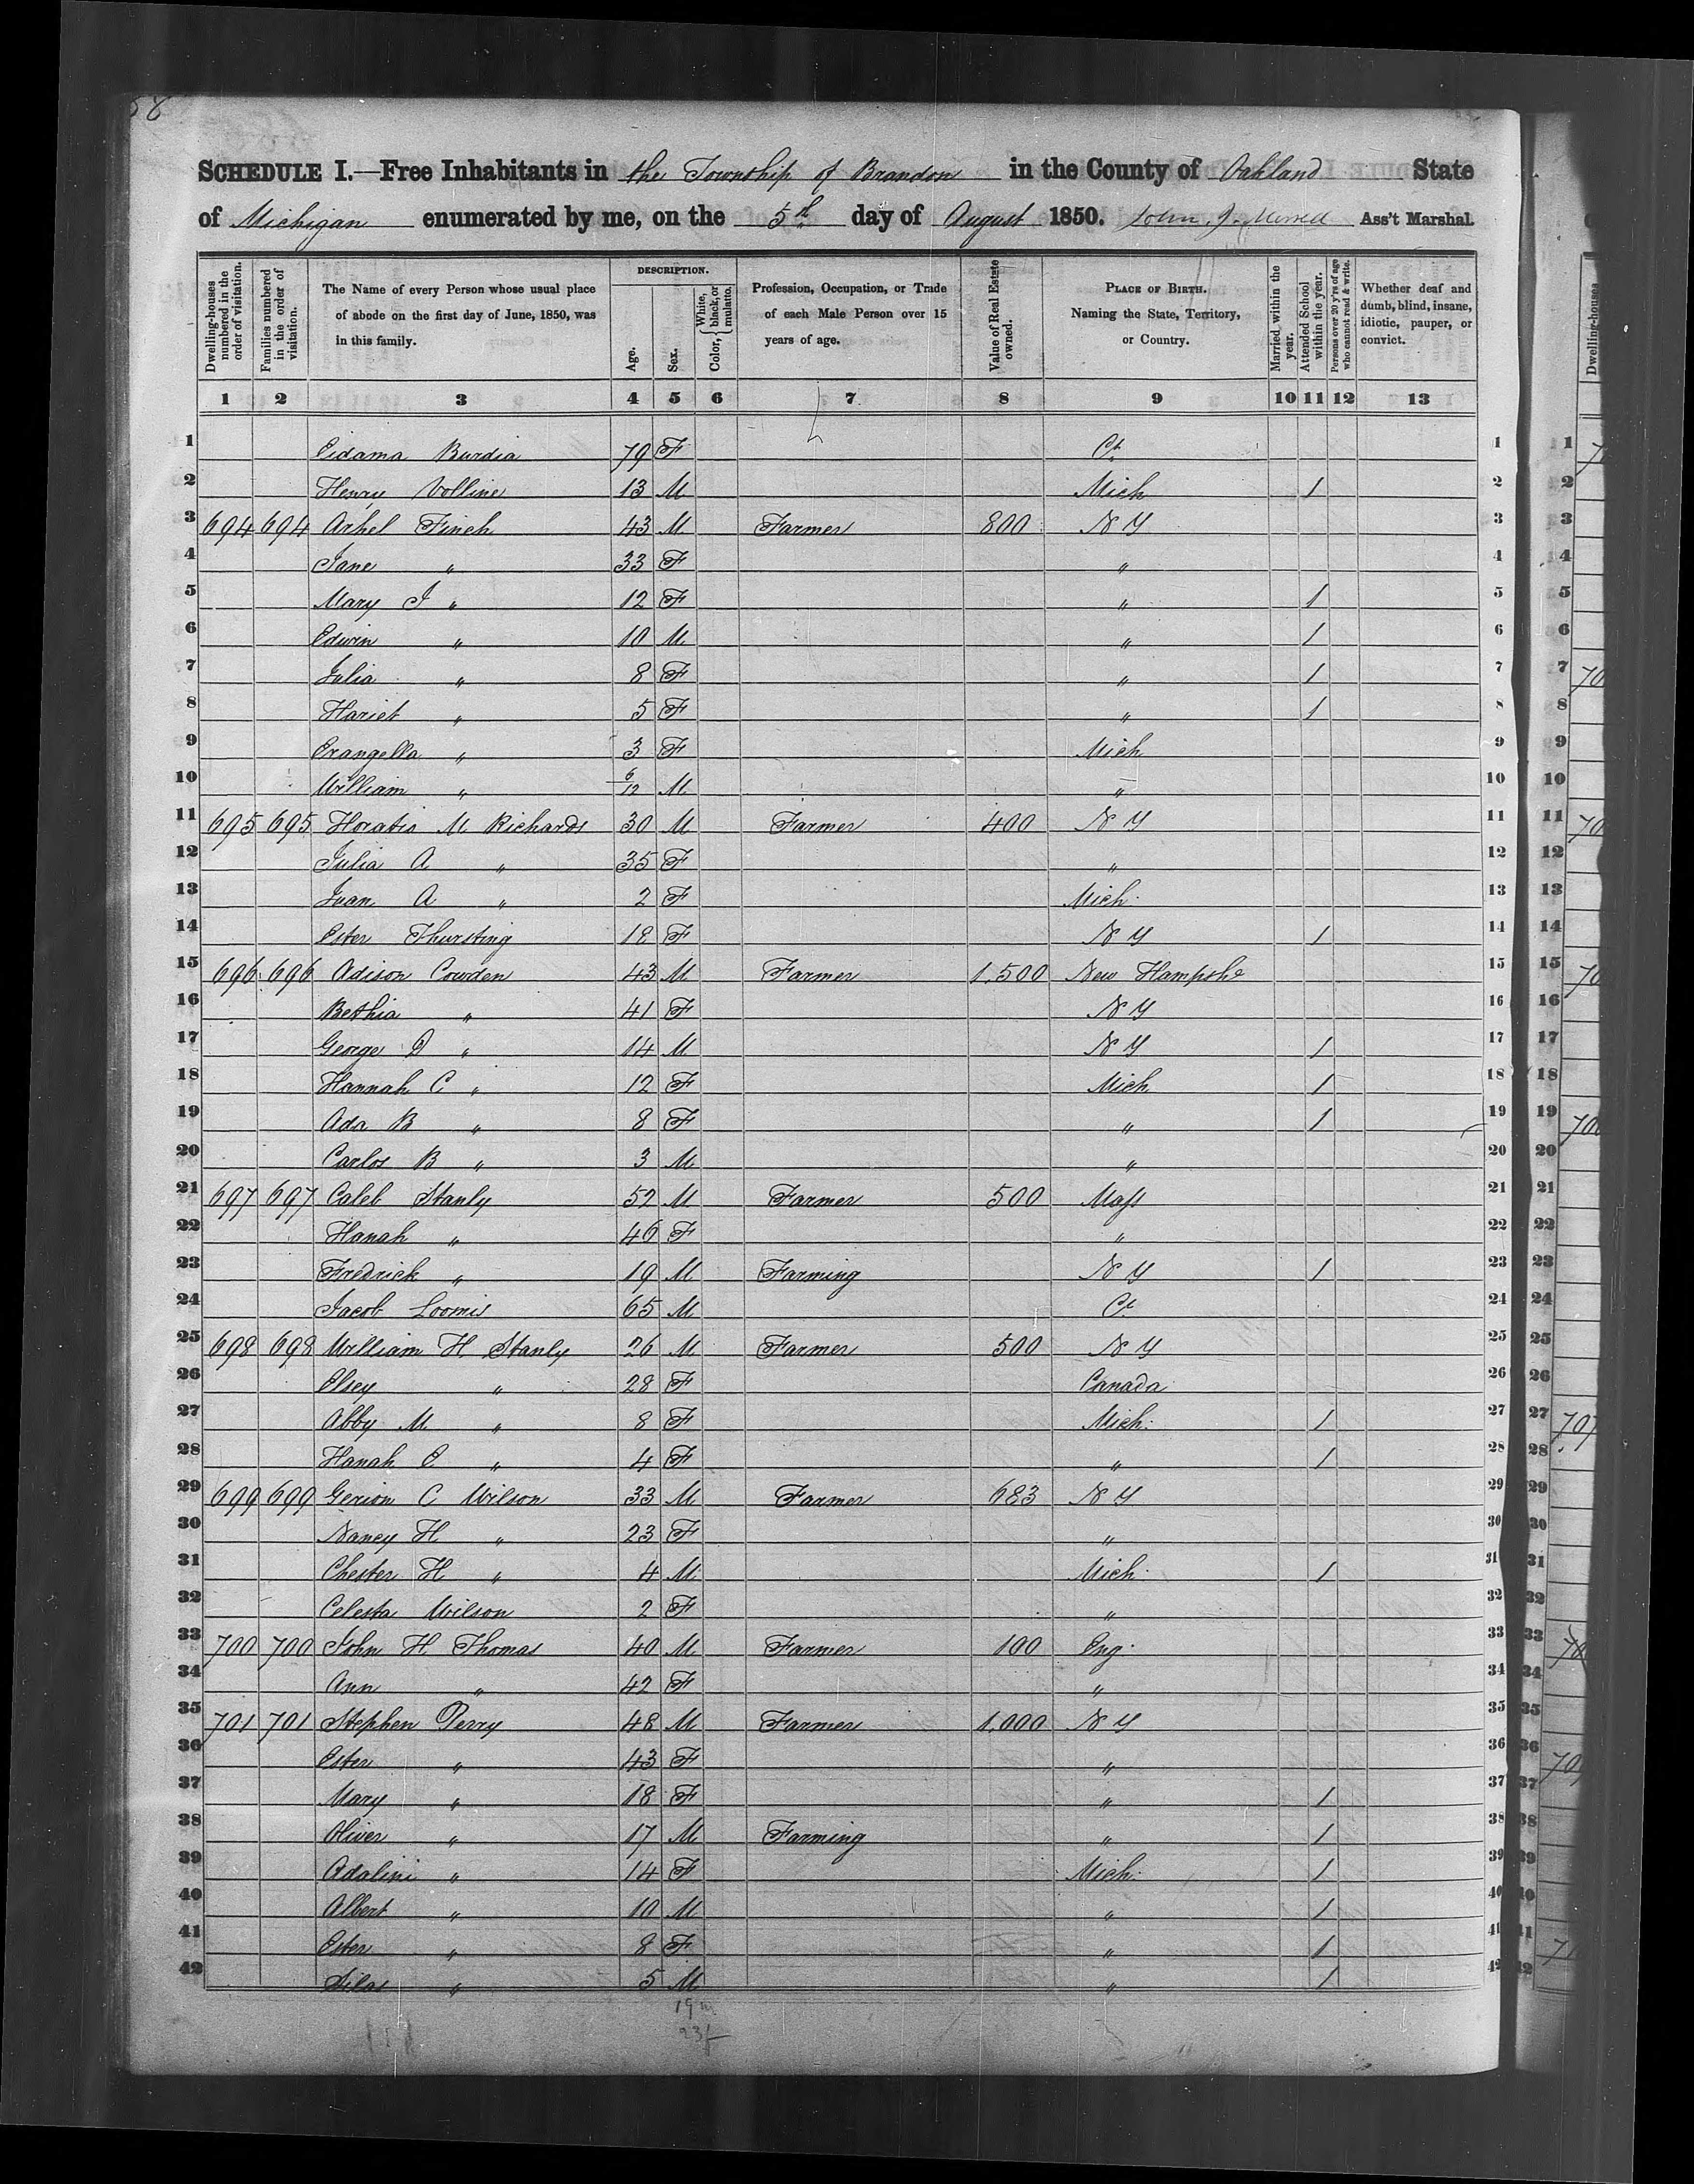 58
SCHEDULE I.—Free Inhabitants in the Township of Brandon in the County of Oakland State
of Michigan enumerated by me, on the 5th day of August 1850. John J. Ass't Marshal.
Dwelling-houses numbered in the order of visitation.
Families numbered in the order of visitation.
The Name of every Person whose usual place of abode on the first day of June, 1850, was in this family.
DESCRIPTION.
Age.
Sex.
Color, { White, black, or mulatto.
Profession, Occupation, or Trade of each Male Person over 15 years of age.
Value of Real Estate owned.
PLACE OF BIRTH. Naming the State, Territory, or Country.
Married within the year.
Attended School within the year.
Persons over 20 y'rs of age who cannot read & write.
Whether deaf and dumb, blind, insane, idiotic, pauper, or convict.
1 2 3 4 5 6 7 8 9 10 11 12 13
1 Burdia 79 F Ct. 1
2 Henry Volline 13 M Mich 1 2
3 694 694 Finch 43 M Farmer 800 N Y 3
4 Jane " 33 F " 4
5 Mary J " 12 F " 1 5
6 Edwin " 10 M " 1 6
7 Julia " 8 F " 1 7
8 Hariet " 5 F " 1 8
9 Evangella " 3 F Mich 9
10 William " 6/12 M " 10
11 695 695 Horatio M Richards 30 M Farmer 400 N Y 11
12 Julia A " 35 F " 12
13 Juan A " 2 F Mich 13
14 Ester Thursting 18 F N Y 1 14
15 696 696 Adison Cowden 43 M Farmer 1,500 New Hampshe 15
16 Bethia " 41 F N Y 16
17 George D " 14 M N Y 1 17
18 Hannah C " 12 F Mich 1 18
19 Ada B " 8 F " 1 19
20 Carlos B " 3 M " 20
21 697 697 Caleb Stanly 52 M Farmer 500 Mass 21
22 Hanah " 46 F " 22
23 Fredrick " 19 M Farming N Y 1 23
24 Jacob Loomis 65 M Ct 24
25 698 698 William H Stanly 26 M Farmer 500 N Y 25
26 Elsey " 28 F Canada 26
27 Abby M " 8 F Mich 1 27
28 Hanah E " 4 F " 1 28
29 699 699 Gerion C Wilson 33 M Farmer 683 N Y 29
30 Nancy H " 23 F " 30
31 Chester H " 4 M Mich 1 31
32 Celesta Wilson 2 F " 32
33 700 700 John H Thomas 40 M Farmer 100 Eng 33
34 Ann " 42 F " 34
35 701 701 Stephen Perry 48 M Farmer 1,000 N Y 35
36 Ester " 43 F " 36
37 Mary " 18 F " 1 37
38 Oliver " 17 M Farming " 1 38
39 Adaline " 14 F Mich 1 39
40 Albert " 10 M " 1 40
41 Ester " 8 F " 1 41
42 Silas " 5 M " 1 42
19 m
23 f